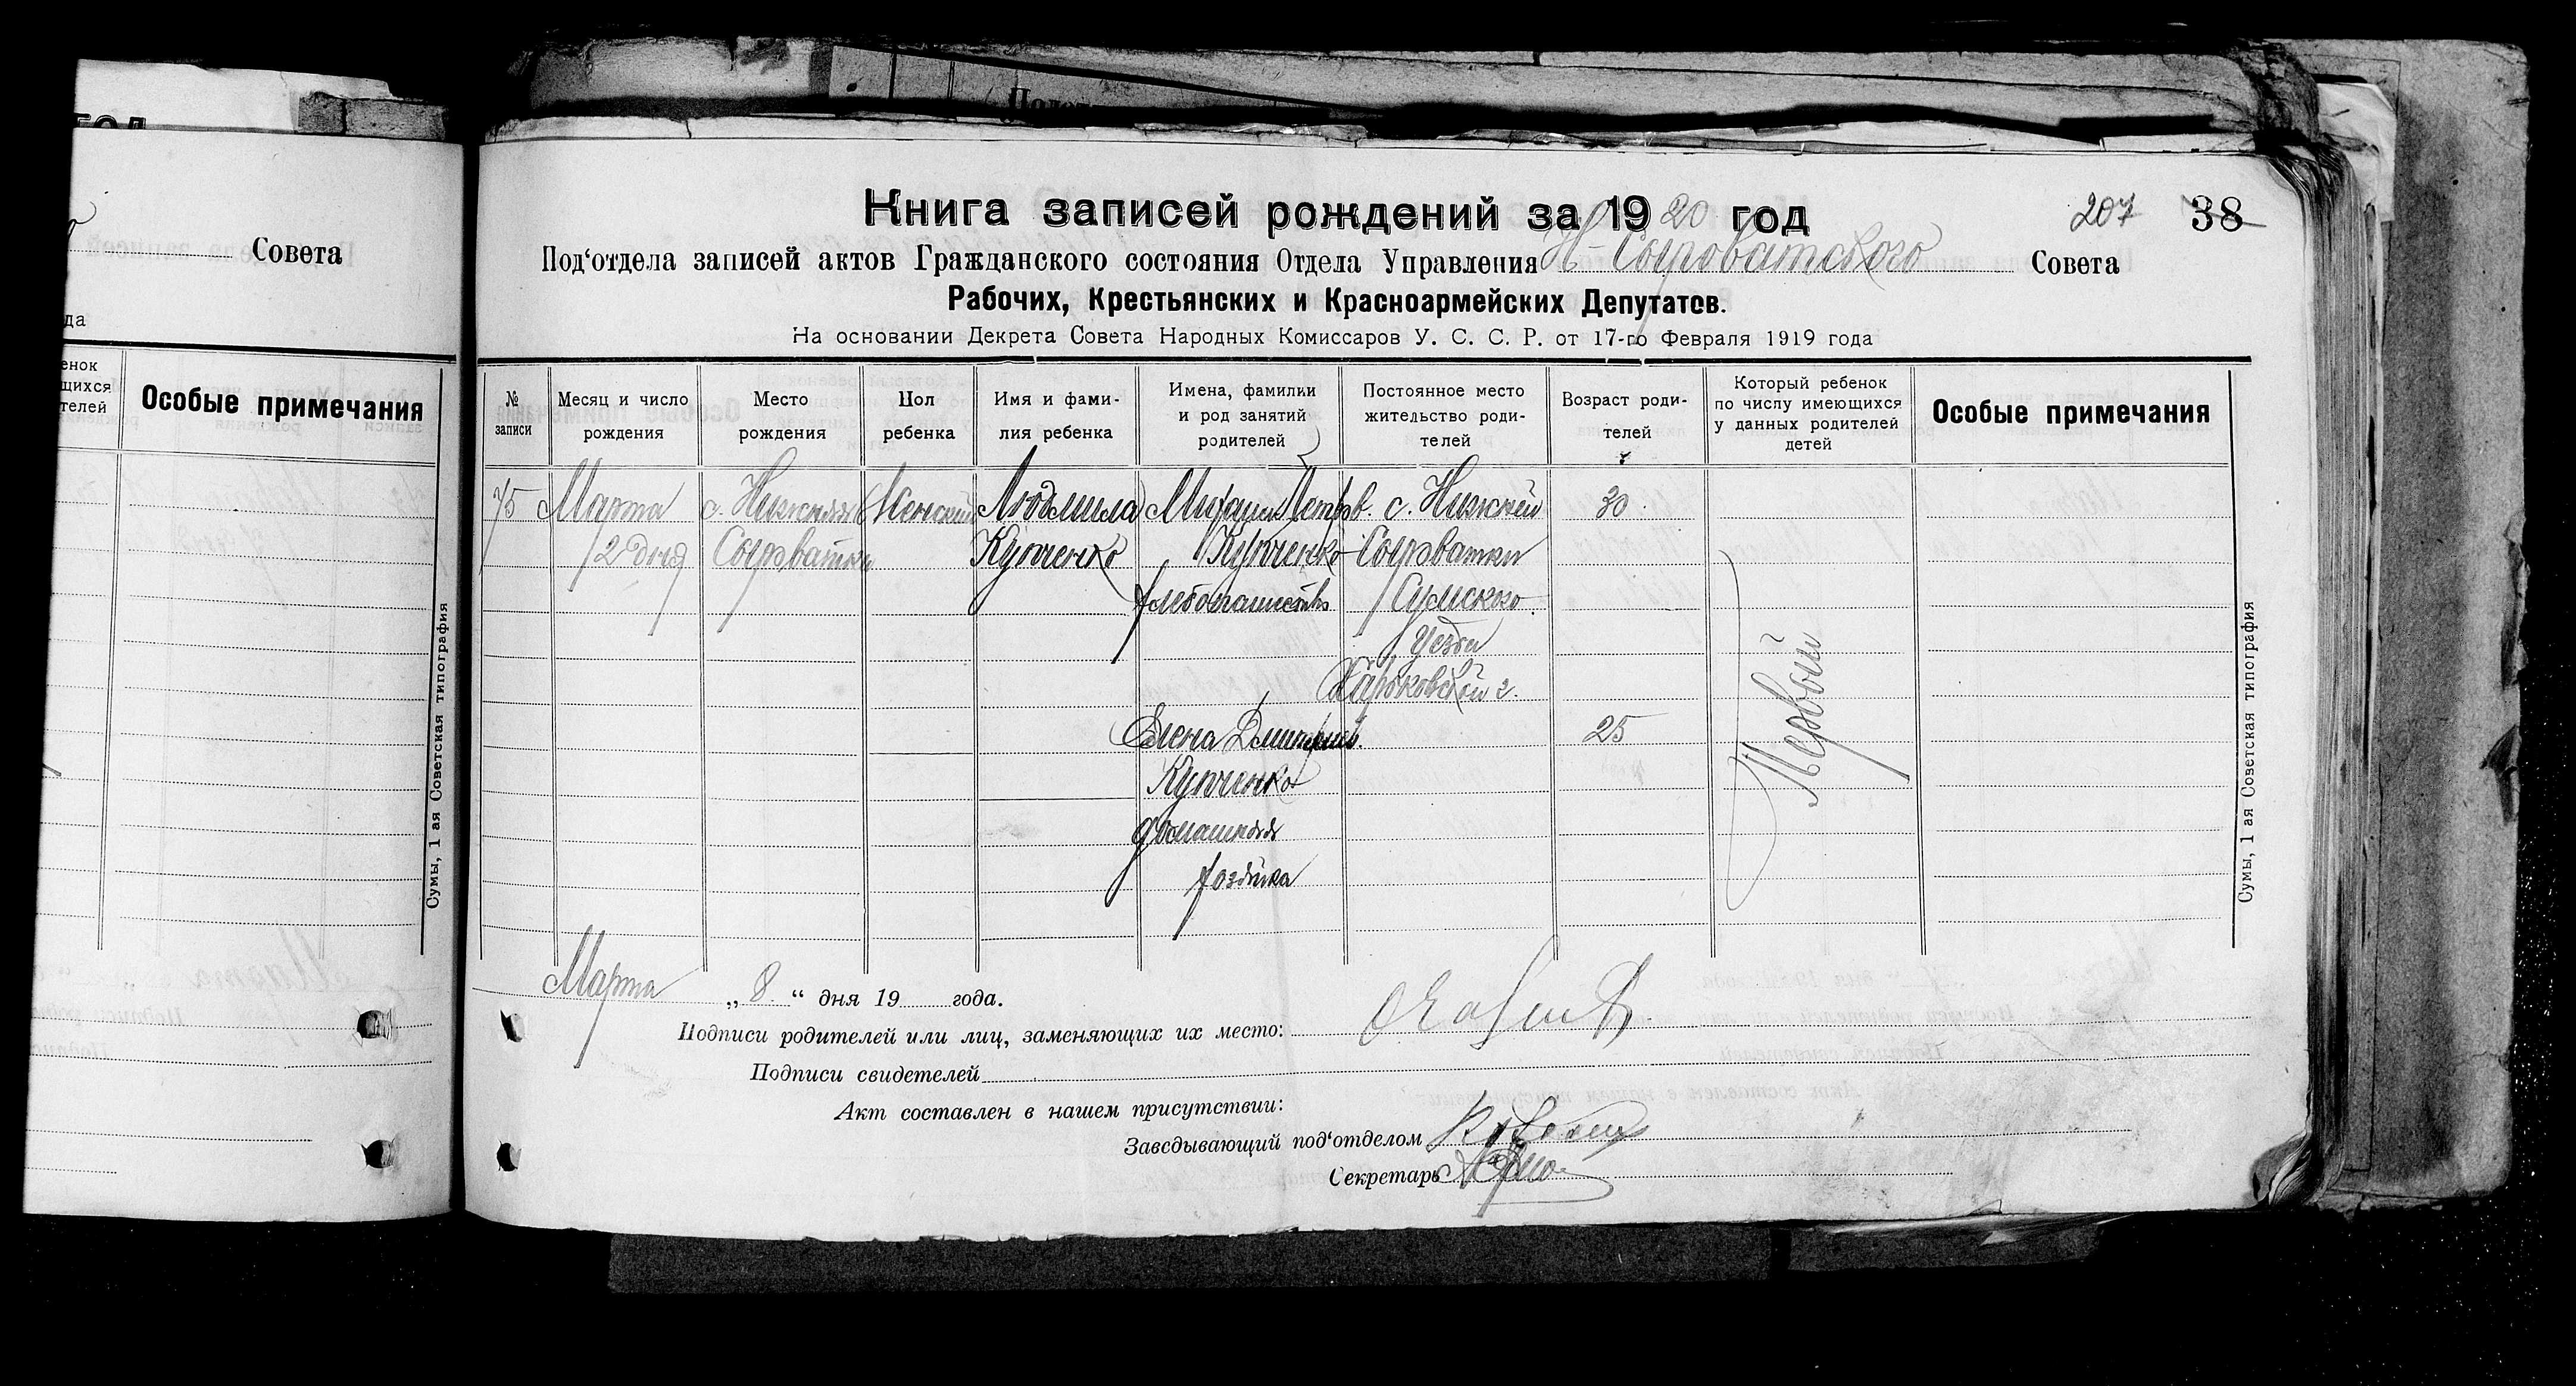 год
Совета
да
енок
щихся
телей
Особые примечания
Сумы, 1 ая Советская типография
Книга записей рождений за 1920 год
207 38
Под‘отдела записей актов Гражданского состояния Отдела Управления Н-Сыроватского Совета
Рабочих, Крестьянских и Красноармейских Депутатов.
На основании Декрета Совета Народных Комиссаров У. С. С. Р. от 17-го Февраля 1919 года
№ записи
Месяц и число рождения
Место рождения
Пол ребенка
Имя и фами-
лия ребенка
Имена, фамилии
и род занятий
родителей
Постоянное место
жительство роди-
телей
Возраст роди-
телей
Который ребенок
по числу имеющихся
у данных родителей
детей
Особые примечания
75 Марта с. Нижняя Женский Людмила Михаил Петров. с. Нижней 30
2 дня Сыроватка Купченко Купченко Сыроватки
хлебопашество Сумского
Уезда
Харьковской г.
Елена Дмитриев. 25
Купченко
домашняя
хозяйка
Первый
Марта „8“ дня 19 года.
Подписи родителей или лиц, заменяющих их место:
Подписи свидетелей
Акт составлен в нашем присутствии:
Заведывающий под‘отделом
Секретарь
Сумы, 1 ая Советская типография